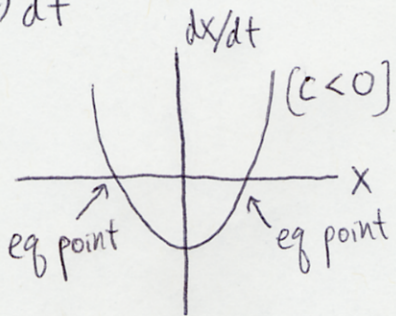 ) dt
dx/dt
[C < 0]
X
eq point
eq point